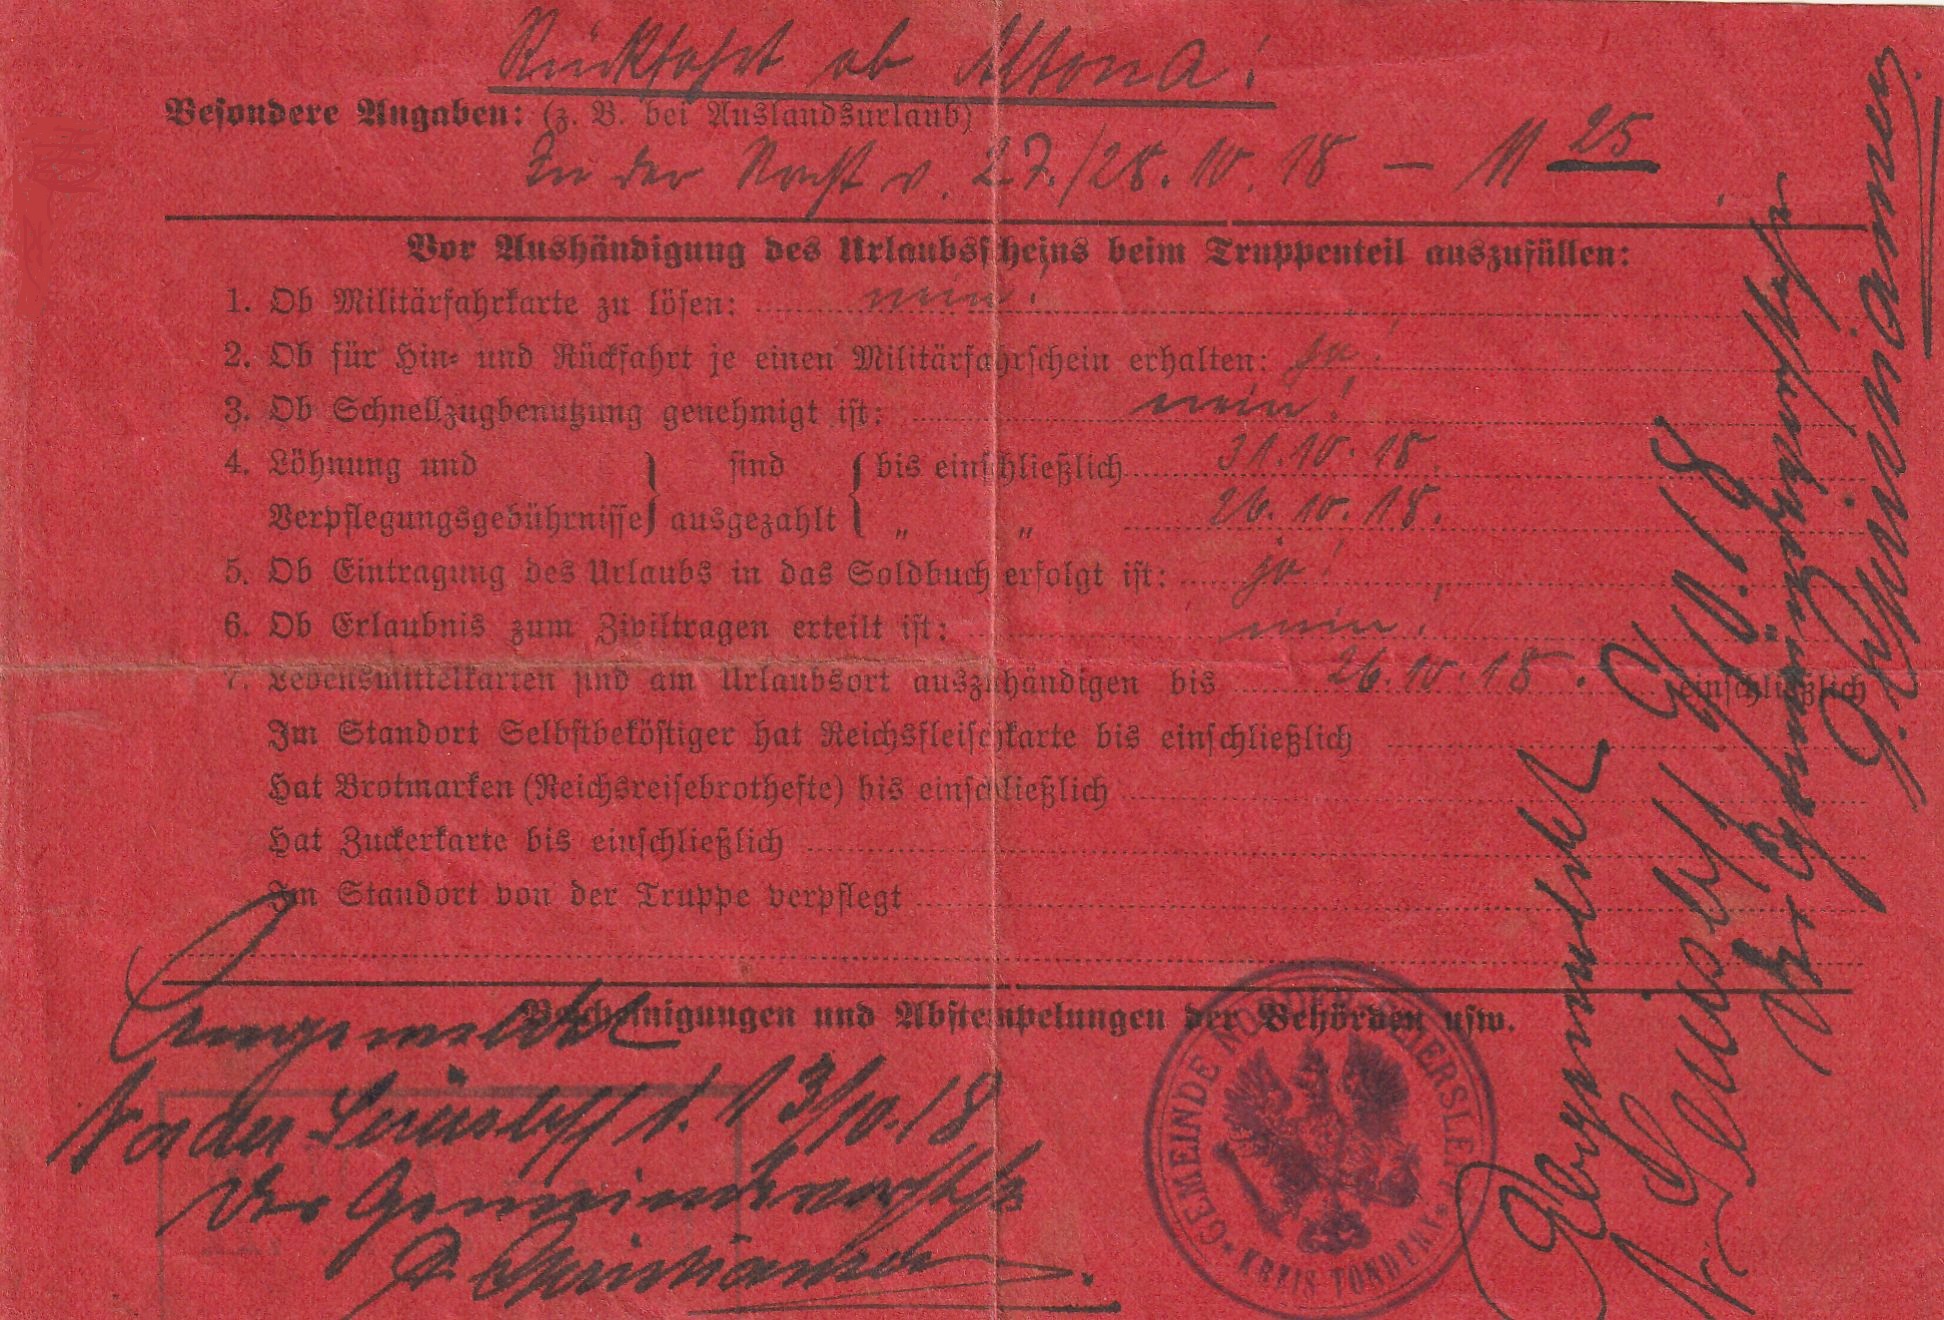 Rückfahrt ab Altona!
Besondere Angaben: (z. B. bei Auslandsurlaub)
In der Nacht v. 27./28. 10. 18 — 11 25
Vor Aushändigung des Urlaubsscheins beim Truppenteil auszufüllen:
1. Ob Militärfahrkarte zu lösen: nein!
2. Ob für Hin- und Rückfahrt je einen Militärfahrschein erhalten: ja!
3. Ob Schnellzugbenutzung genehmigt ist: nein!
4. Löhnung und } sind { bis einschließlich 31. 10. 18.
Verpflegungsgebührnisse } ausgezahlt { „ „ 26. 10. 18.
5. Ob Eintragung des Urlaubs in das Soldbuch erfolgt ist: ja!
6. Ob Erlaubnis zum Ziviltragen erteilt ist: nein!
7. Lebensmittelkarten sind am Urlaubsort auszuhändigen bis 26. 10. 18. einschließlich
Im Standort Selbstbeköstiger hat Reichsfleischkarte bis einschließlich
Hat Brotmarken (Reichsreisebrothefte) bis einschließlich
Hat Zuckerkarte bis einschließlich
Im Standort von der Truppe verpflegt
Bescheinigungen und Abstempelungen der Behörden usw.
Angemeldet
d. 13/10.18
Der Gemeindevorsteher
Christiansen
GEMEINDE NORDER-SEIERSLEFF
* KREIS TONDERN *
Abgemeldet
Der Gemeindevorsteher